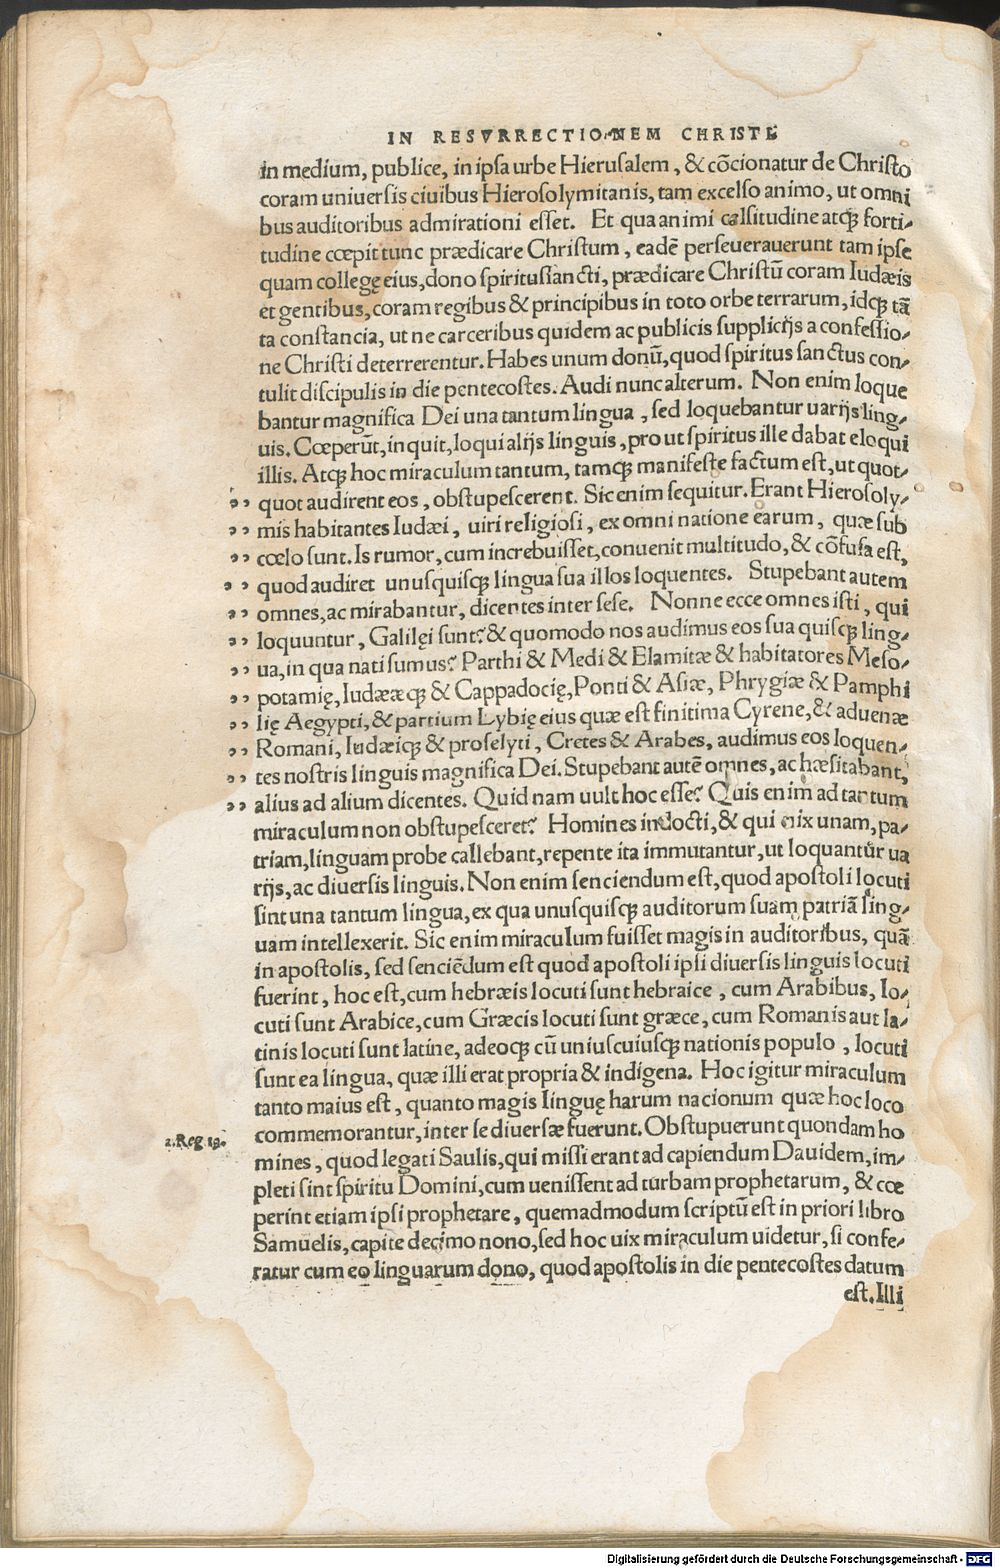 IN RESVRRECTIONEM CHRISTI
in medium, publice, in ipsa urbe Hierusalem, & cõcionatur de Christo
coram uniuersis ciuibus Hierosolymitanis, tam excelso animo, ut omni
bus auditoribus admirationi esset. Et qua animi calsitudine atqꝫ forti-
tudine cœpit tunc prædicare Christum, eadẽ perseuerauerunt tam ipse
quam collegę eius, dono spiritussancti, prædicare Christũ coram Iudæis
et gentibus, coram regibus & principibus in toto orbe terrarum, idqꝫ tã
ta constancia, ut ne carceribus quidem ac publicis supplicijs a confessio-
ne Christi deterrerentur. Habes unum donũ, quod spiritus sanctus con-
tulit discipulis in die pentecostes. Audi nunc alterum. Non enim loque
bantur magnifica Dei una tantum lingua, sed loquebantur uarijs ling-
uis. Cœperũt, inquit, loqui alijs linguis, pro ut spiritus ille dabat eloqui
illis. Atqꝫ hoc miraculum tantum, tamqꝫ manifeste factum est, ut quot-
,, quot audirent eos, obstupescerent. Sic enim sequitur. Erant Hierosoly-
,, mis habitantes Iudæi, uiri religiosi, ex omni natione earum, quæ sub
,, cœlo sunt. Is rumor, cum increbuisset, conuenit multitudo, & cõfusa est,
,, quod audiret unusquisqꝫ lingua sua illos loquentes. Stupebant autem
,, omnes, ac mirabantur, dicentes inter sese. Nonne ecce omnes isti, qui
,, loquuntur, Galilęi sunt? & quomodo nos audimus eos sua quisqꝫ ling-
,, ua, in qua nati sumus? Parthi & Medi & Elamitæ & habitatores Meso-
,, potamię, Iudææqꝫ & Cappadocię, Ponti & Asiæ, Phrygiæ & Pamphi
,, lię Aegypti, & partium Lybię eius quæ est finitima Cyrene, & aduenæ
,, Romani, Iudæiqꝫ & proselyti, Cretes & Arabes, audimus eos loquen-
,, tes nostris linguis magnifica Dei. Stupebant autẽ omnes, ac hæsitabant,
,, alius ad alium dicentes. Quid nam uult hoc esse? Quis enim ad tantum
miraculum non obstupesceret? Homines indocti, & qui uix unam, pa-
triam, linguam probe callebant, repente ita immutantur, ut loquantur ua
rijs, ac diuersis linguis. Non enim senciendum est, quod apostoli locuti
sint una tantum lingua, ex qua unusquisqꝫ auditorum suam patriã ling-
uam intellexerit. Sic enim miraculum fuisset magis in auditoribus, quã
in apostolis, sed senciẽdum est quod apostoli ipsi diuersis linguis locuti
fuerint, hoc est, cum hebræis locuti sunt hebraice, cum Arabibus, lo-
cuti sunt Arabice, cum Græcis locuti sunt græce, cum Romanis aut la-
tinis locuti sunt latine, adeoqꝫ cũ uniuscuiusqꝫ nationis populo, locuti
sunt ea lingua, quæ illi erat propria & indigena. Hoc igitur miraculum
tanto maius est, quanto magis linguę harum nacionum quæ hoc loco
commemorantur, inter se diuersæ fuerunt. Obstupuerunt quondam ho
1. Reg 19.
mines, quod legati Saulis, qui missi erant ad capiendum Dauidem, im-
pleti sint spiritu Domini, cum uenissent ad turbam prophetarum, & cœ
perint etiam ipsi prophetare, quemadmodum scriptũ est in priori libro
Samuelis, capite decimo nono, sed hoc uix miraculum uidetur, si confe-
ratur cum eo linguarum dono, quod apostolis in die pentecostes datum
est. Illi
Digitalisierung gefördert durch die Deutsche Forschungsgemeinschaft - DFG